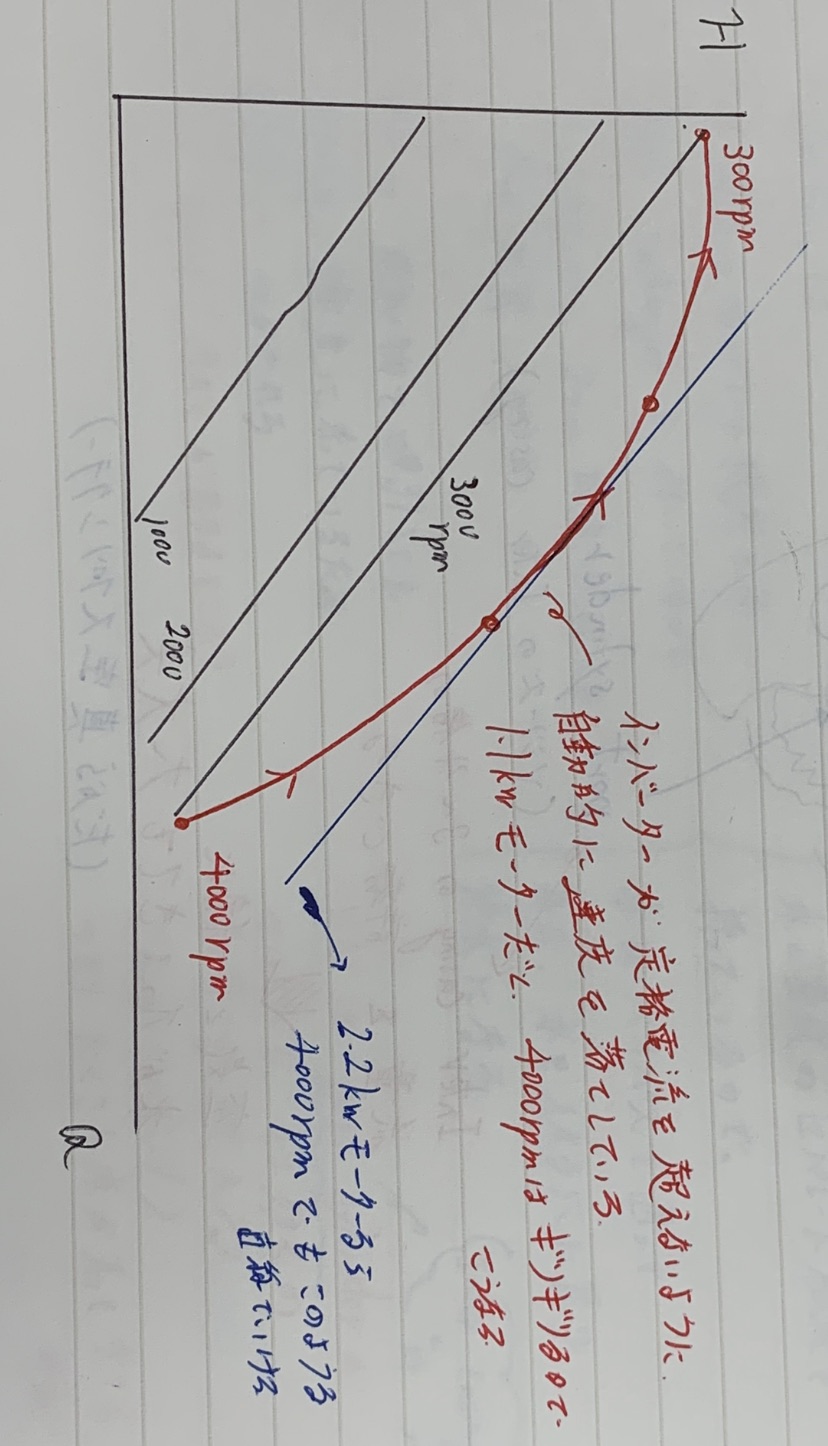 H
300rpm
3000
rpm
1000
2000
4000rpm
Q
インバーターが定格電流を超えないように
自動的に速度を落としている.
1.1kwモーターだと. 4000rpmはギリギリなので
こうなる
2.2kwモーターなら
4000rpmでもこのような
直線でいける